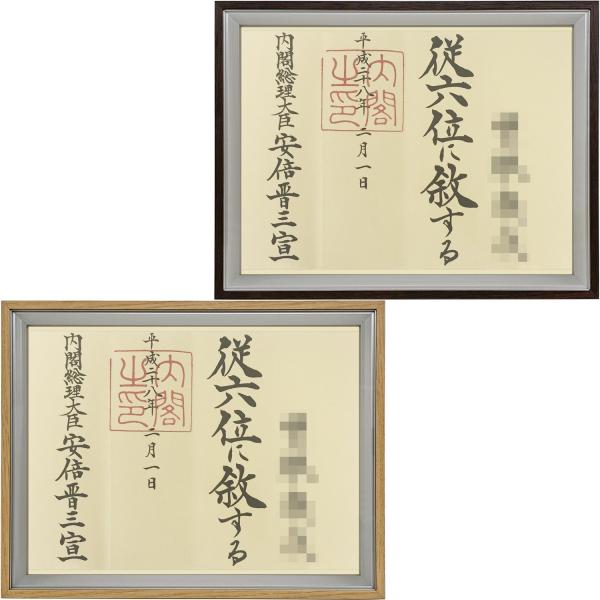 従六位に叙する
平成二十八年二月一日
内閣之印
内閣総理大臣安倍晋三宣
従六位に叙する
平成二十八年二月一日
内閣之印
内閣総理大臣安倍晋三宣